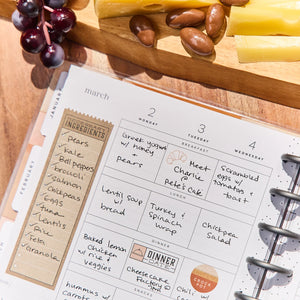 march
JANUARY
FEBRUARY
INGREDIENTS
Pears
Kale
Bell peppers
broccoli
Salmon
chickpeas
Eggs
tuna
Lentils
Rice
Feta
Granola
2
MONDAY
3
TUESDAY
4
WEDNESDAY
BREAKFAST
Greek yogurt
w/ honey
+
pears
Meet
Charlie
@
Pete's Cafe
Scrambled
eggs w/
tomatoes +
toast
LUNCH
Lentil soup
w/
bread
Turkey +
Spinach
Wrap
Chickpea
Salad
DINNER
Baked lemon
chicken w/
rice +
veggies
DINNER
Cheesecake
Factory
Chili w/
hummus w/
carrots